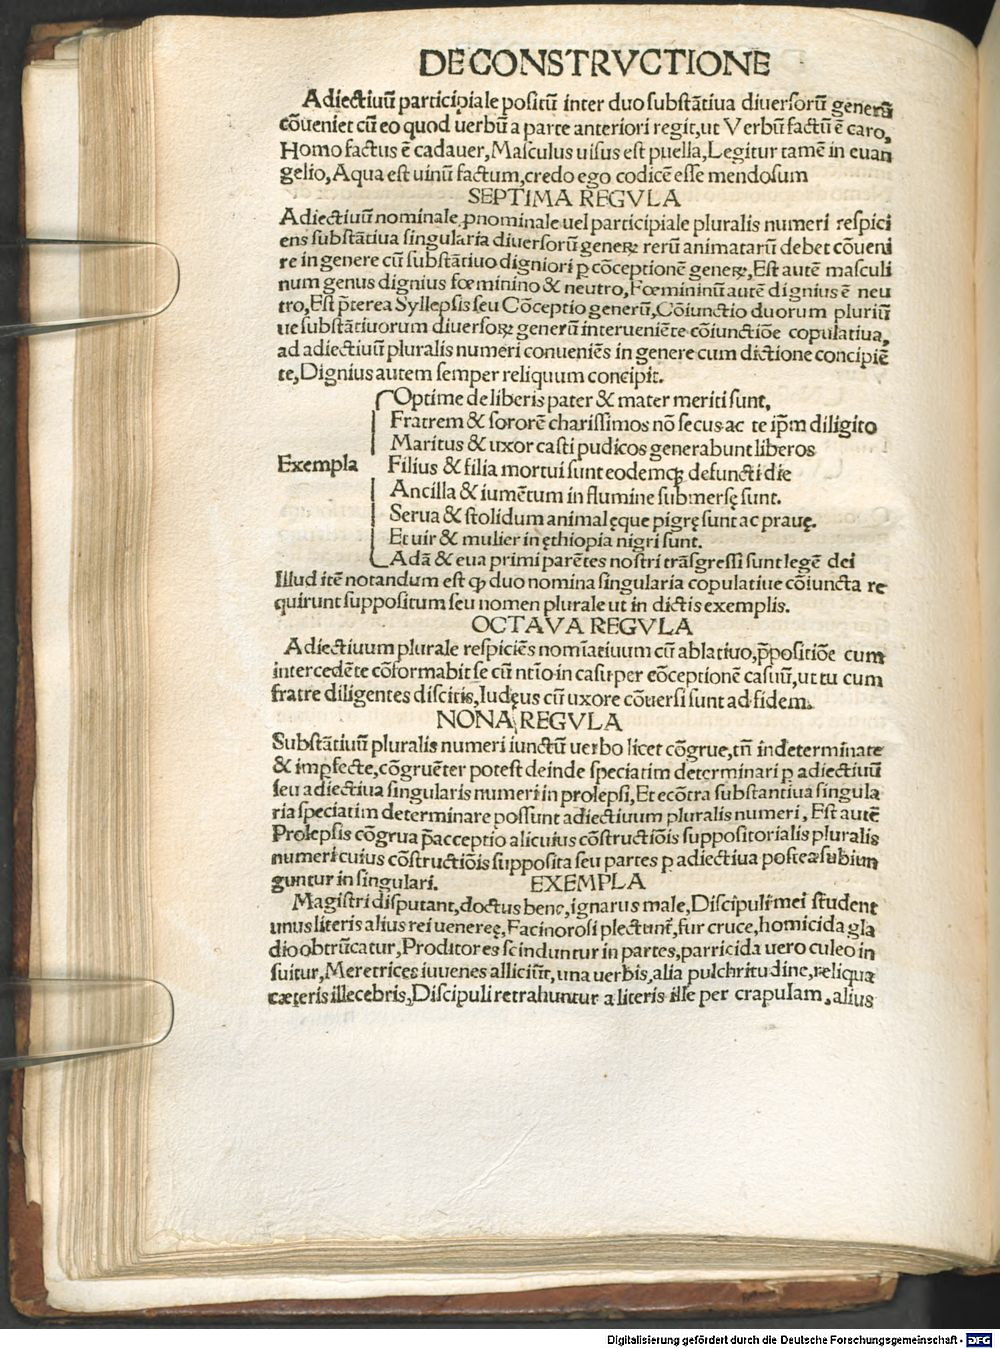 DE CONSTRVCTIONE
Adiectiuū participiale positū inter duo substātiua diuersorū generū
cōueniet cū eo quod uerbū a parte anteriori regit, ut Verbū factū ē caro,
Homo factus ē cadauer, Masculus uisus est puella, Legitur tamē in euan
gelio, Aqua est uinū factum, credo ego codicē esse mendosum
SEPTIMA REGVLA
Adiectiuū nominale ꝓnominale uel participiale pluralis numeri respici
ens substātiua singularia diuersorū geneꝝ rerū animatarū debet cōueni
re in genere cū substātiuo digniori ꝑ cōceptionē geneꝝ, Est autē masculi
num genus dignius fœminino & neutro, Fœmininū autē dignius ē neu
tro, Est p̄terea Syllepsis seu Cōceptio generū, Cōiunctio duorum pluriū
ue substātiuorum diuersoꝝ generū interueniēte cōiunctiōe copulatiua,
ad adiectiuū pluralis numeri conueniēs in genere cum dictione concipiē
te, Dignius autem semper reliquum concipit.
Optime de liberis pater & mater meriti sunt,
Fratrem & sororē charissimos nō secus ac te ip̄m diligito
Maritus & uxor casti pudicos generabunt liberos
Exempla Filius & filia mortui sunt eodemqꝫ defuncti die
Ancilla & iumētum in flumine submersę sunt.
Serua & stolidum animal ęque pigrę sunt ac prauę.
Et uir & mulier in ęthiopia nigri sunt.
Adā & eua primi parētes nostri trāsgressi sunt legē dei
Illud itē notandum est ꝙ duo nomina singularia copulatiue cōiuncta re
quirunt suppositum seu nomen plurale ut in dictis exemplis.
OCTAVA REGVLA
Adiectiuum plurale respiciēs nomīatiuum cū ablatiuo, p̄positiōe cum
intercedēte cōformabit se cū ntīo in casu per cōceptionē casuū, ut tu cum
fratre diligentes discitis, Iudęus cū uxore cōuersi sunt ad fidem.
NONA REGVLA
Substātiuū pluralis numeri iunctū uerbo licet cōgrue, tn̄ indeterminate
& imꝑfecte, cōgruēter potest deinde speciatim determinari ꝑ adiectiuū
seu adiectiua singularis numeri in prolepsi, Et ecōtra substantiua singula
ria speciatim determinare possunt adiectiuum pluralis numeri, Est autē
Prolepsis cōgrua p̄acceptio alicuius cōstructiōis suppositorialis pluralis
numeri cuius cōstructiōis supposita seu partes ꝑ adiectiua postea subiun
guntur in singulari. EXEMPLA
Magistri disputant, doctus bene, ignarus male, Discipuli mei student
unus literis alius rei uenereę, Facinorosi plectunt᷑, fur cruce, homicida gla
dio obtrūcatur, Proditores scinduntur in partes, parricida uero culeo in
suitur, Meretrices iuuenes alliciūt, una uerbis, alia pulchritudine, reliqua
cæteris illecebris, Discipuli retrahuntur a literis ille per crapulam, alius
Digitalisierung gefördert durch die Deutsche Forschungsgemeinschaft - DFG